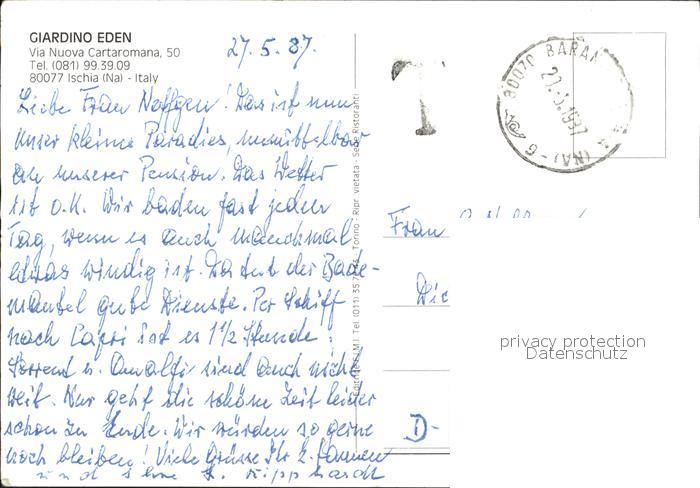 GIARDINO EDEN
Via Nuova Cartaromana, 50
Tel. (081) 99.39.09
80077 Ischia (Na) - Italy
27.5.87.
Liebe Frau ! Das ist nun
unser kleines Paradies, unmittelbar
an unserer Pension. Das Wetter
ist o.k. Wir baden fast jeden
Tag, wenn es auch manchmal
etwas windig ist. Da tut der Bade-
mantel gute Dienste. Per Schiff
nach Capri ist es 1 1/2 Stunde.
Sorrent u. Amalfi sind auch nicht
weit. Nur geht die schöne Zeit leider
schon zu Ende. Wir würden so gerne
noch bleiben! Viele Grüsse Ihr
und
Torino - Ripr. vietata - Sede Ristoranti
T
80070 BARA
(NA) - G
Frau
D-
privacy protection
Datenschutz